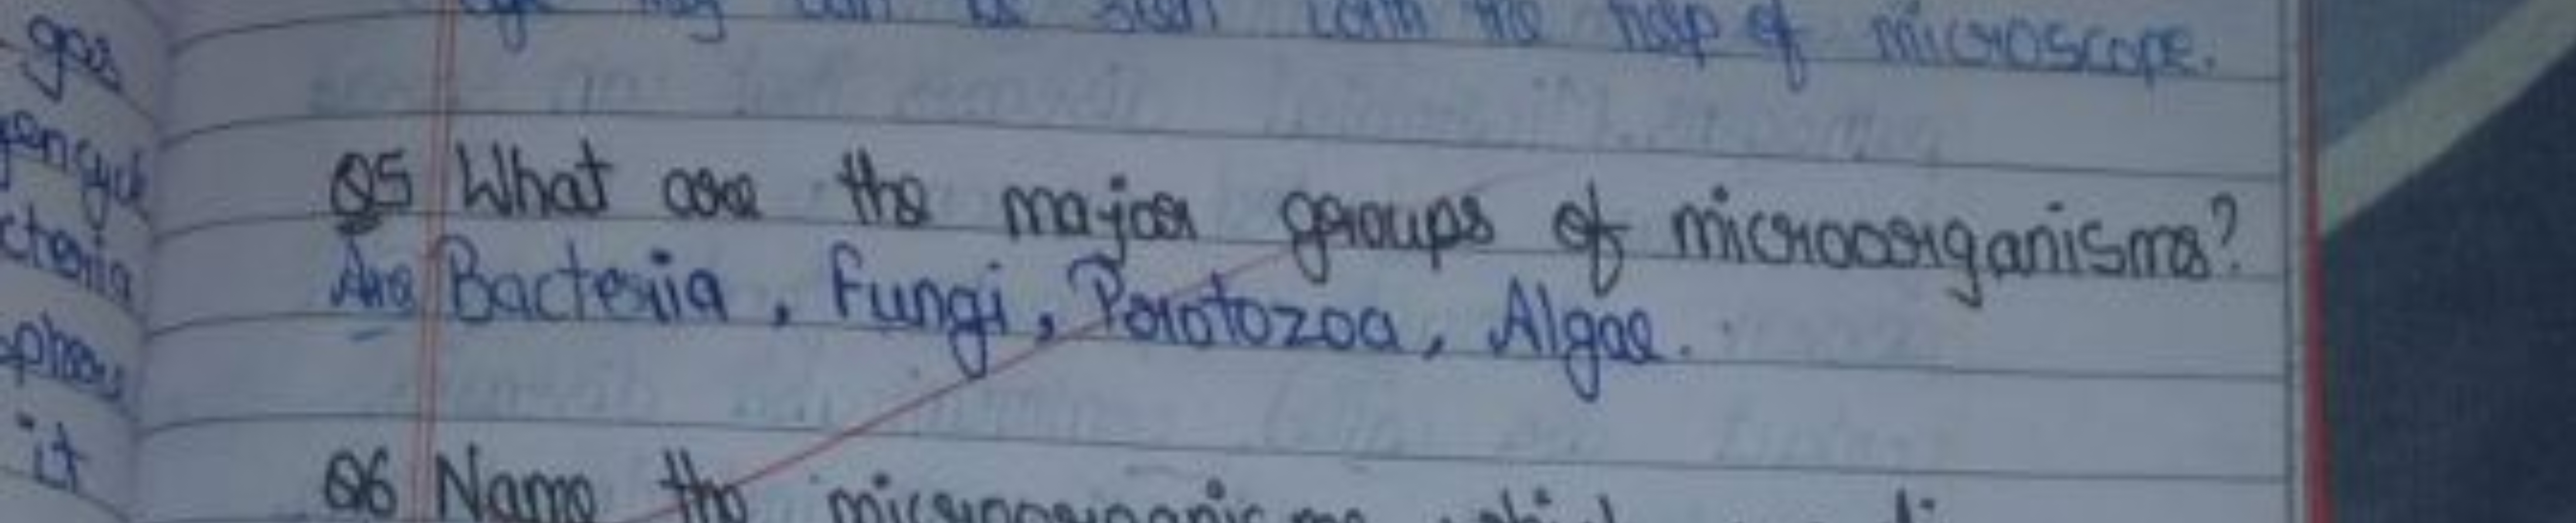 gas
cteria
it
can be seen with the help of microscope.
Q5 What are the major groups of microorganisms?
Ans Bacteria, Fungi, Protozoa, Algae.
Q6 Name the microorganisms